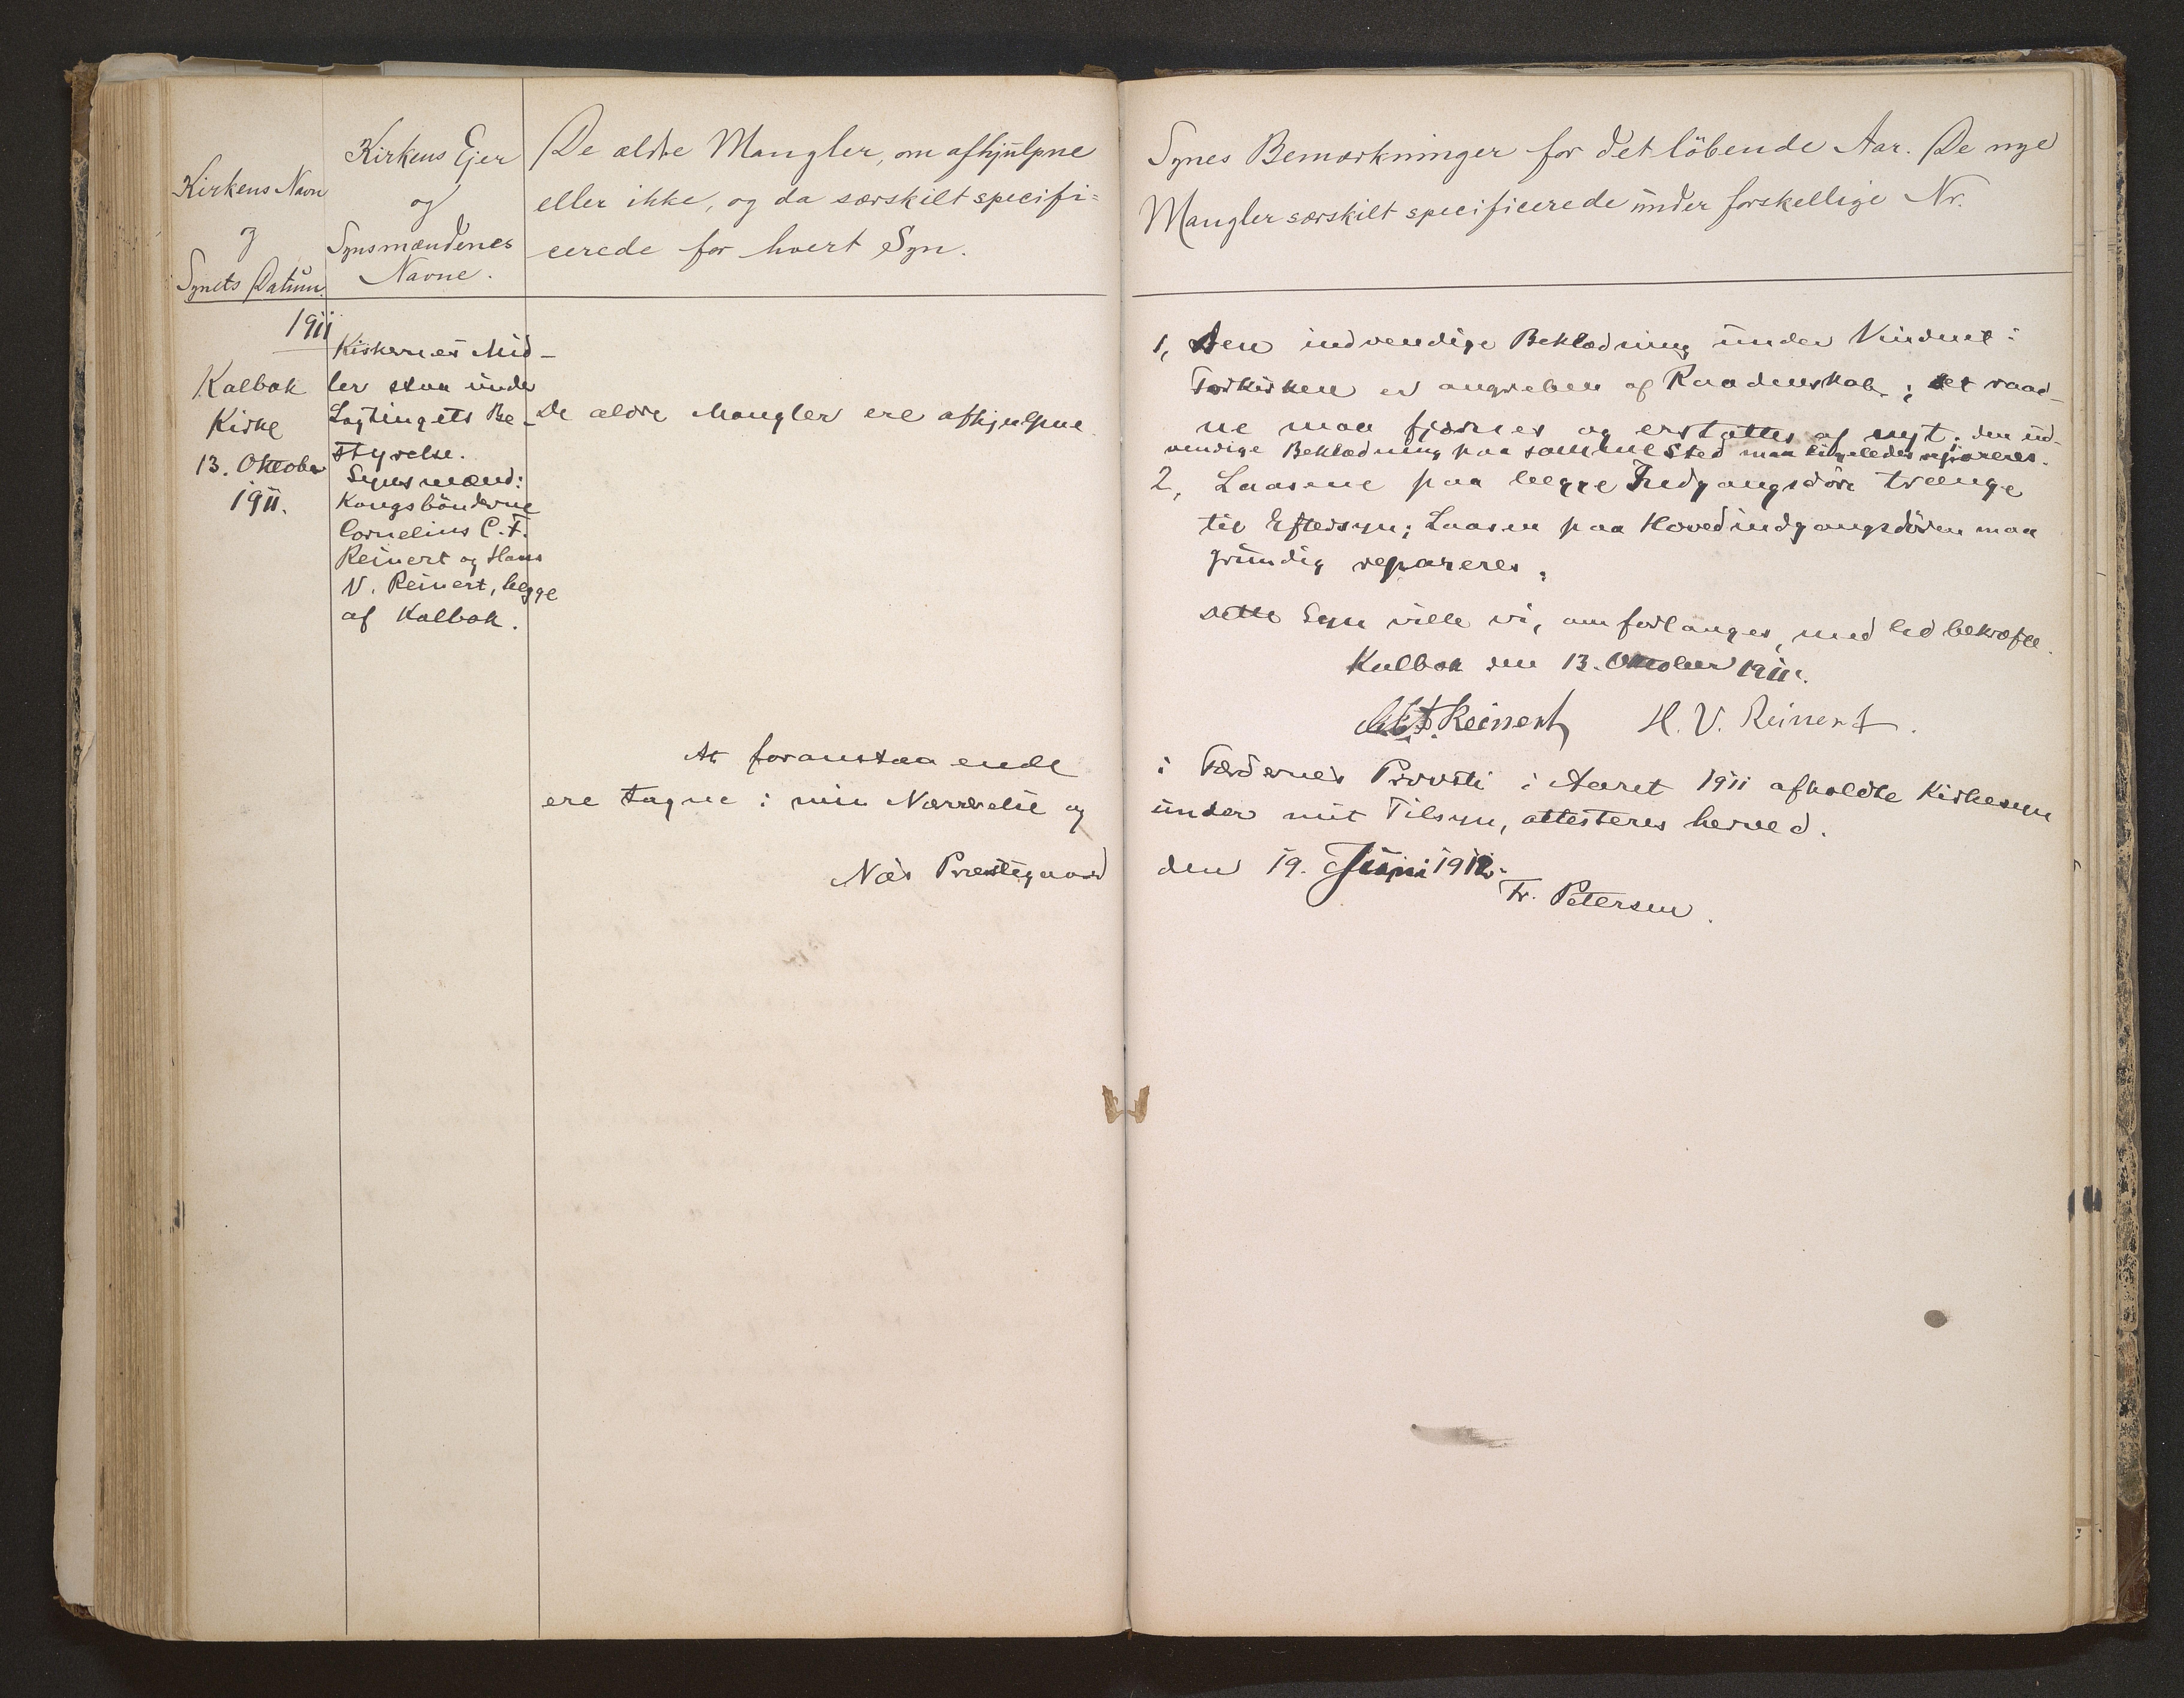 Kirkens Navn
og
Synets Datum.
Kirkens Ejer
og
Synsmændenes
Navne.
De ældre Mangler, om afhjulpne
eller ikke, og da særskilt specifi=
cerede for hvert Syn.
1911
Kalbak
Kirke
13. Oktober
1911.
Kirkernes Mid-
ler staa under
Lagtingets Be-
styrelse.
Synsmænd:
Kongsbönderne
Cornelius C. F.
Reinert og Hans
V. Reinert, begge
af Kalbak.
De ældre Mangler ere afhjulpne.
At foranstaaende
ere tagne i min Nærværelse og
Næs Præstegaard
Synes Bemærkninger for det löbende Aar. De nye
Mangler særskilt specificerede under forskellige Nr.
1, Den indvendige Beklædning under Vinduet i
Forkirken er angreben af Raadenskab; det raad-
ne maa fjærnes og erstattes af nyt; den ud-
vendige Beklædning paa samme Sted maa ligeledes repareres.
2, Laasene paa begge Indgangsdöre trænge
til Eftersyn; Laasen paa Hovedindgangsdören maa
grundig repareres.
Dette Syn ville vi, om forlanges, med Ed bekræfte.
Kalbak den 13. Oktober 1911.
C. C. F. Reinert H. V. Reinert.
i Færöernes Provsti i Aaret 1911 afholdte Kirkesyn
under mit Tilsyn, attesteres herved.
den 19. Juni 1912.
Fr. Petersen.